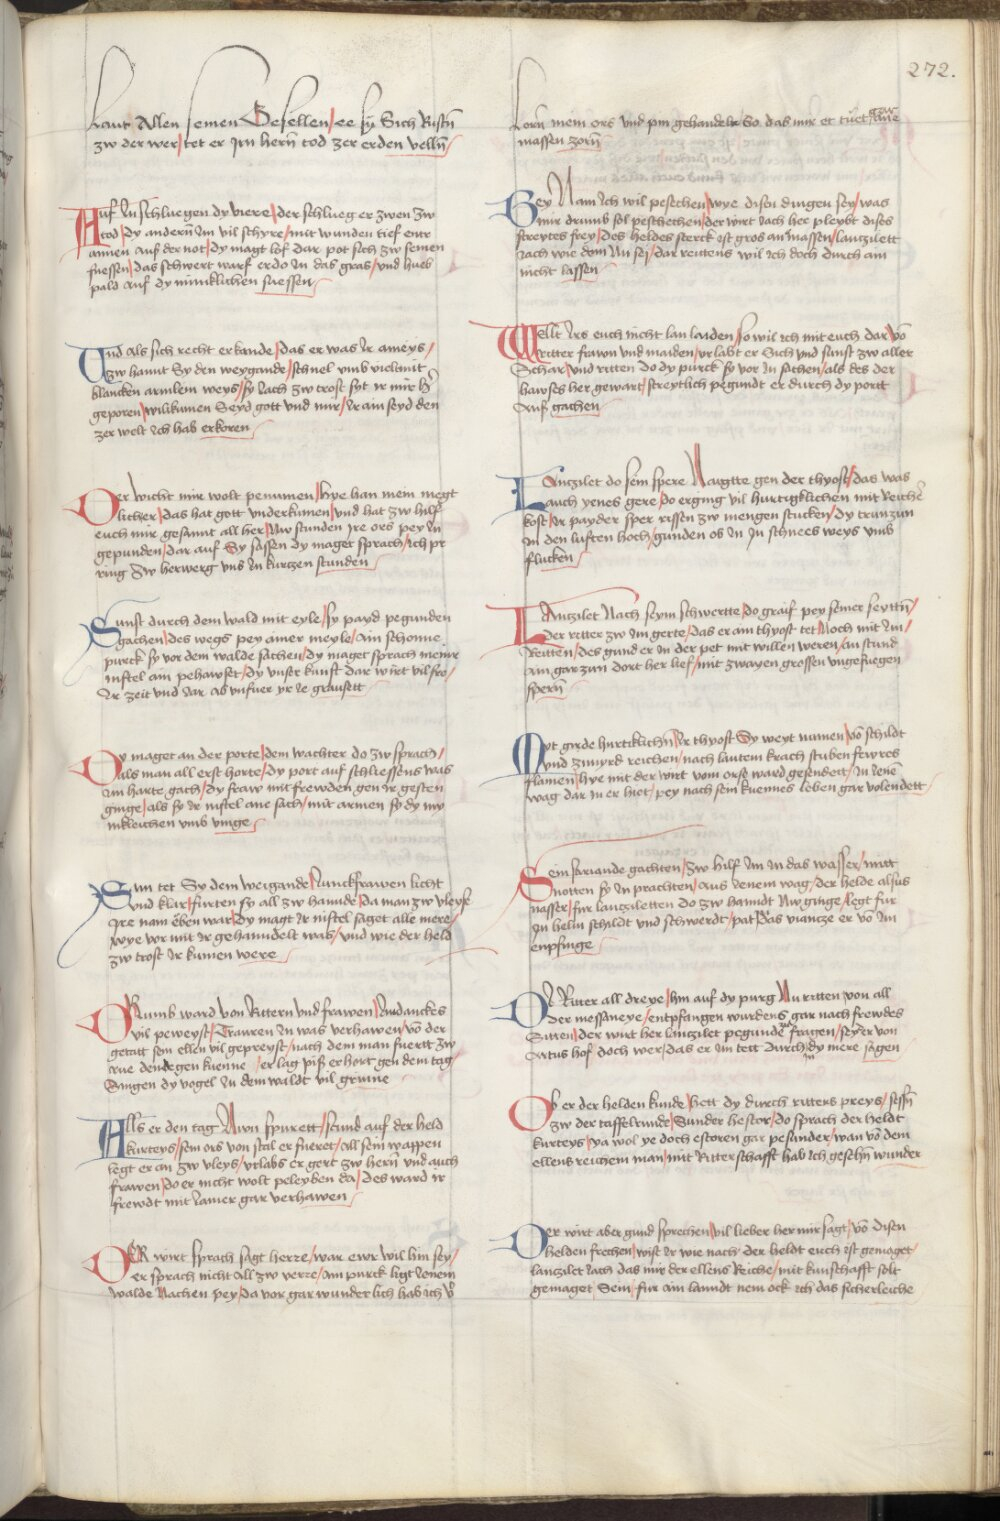 272.
hant Allen seinen Gesellen / ee sy Sich Rustn̄
zw der wer / tet er Irn hern̄ tod zer erden velln̄ /
Auf In schluegen dy viere / der schlueg er zwen zw
tod / dy andern̄ Im vil schyre / mit wunden tief entr
annen auf der not / dy magt lof dar pot sich zw seinen
fuessen / das schwert warf er do In das gras / vnd hueb
pald auf dy minniklichen suessen /
Und als sich recht erkande / das er was Ir ameys /
zw hannt Sy den weygande / schnel vmb vieng mit
blancken armlein weys / sy Iach zw trost syt Ir mir h
geporen / wilikumen Seyd gott vnd mir / Ir ain seyd den
zer welt Ich hab erkoren /
Der wicht mir wolt penumen / hye han mein megt
licher / das hat gott vnderkumen / vnd hat zw hilf
euch mir gesannt all her / Nw stunden ire ors pey In
gepunden / dar auf Sy sassen dy maget sprach / Ich pr
ring Zw herwerg vns In kurtzen stunden /
Sunst durch dem wald mit eyle / sy payd pegunden
gachen / des wegs pey ainer meyle / ain schonne
purck sy vor dem walde sachen / dy maget sprach meiner
niftel ain pehawset / dy vnser kunft dar wirt vil fro /
Ir zeit vnd Iar ab vnfuer yr Ie grauset /
Dy maget an der porte / dem wachter do zw sprach /
als man all erst horte / dy port auf schliessens was
Im harte gach / dy fraw mit frewden gen Ir gesten
ginge / als sy Ir niftel ane sach / mit armen sy dy my
nikleichen vmb vinge /
Sam tet Sy dem weigande / Iunckfrawen licht
vnd klar / furten sy all zw hannde / da man zw vleys
Ire nam eben war / dy magt Ir niftel saget alle mere /
wye vor mit Ir gehanndelt was / vnd wie der held
zw trost Ir kumen were
Drumb ward von Rittern vnd frawen / Im danckes
vil peweyst / Trauren In was verhawen / vō der
getatt sein ellen vil gepreyst / nach dem man fuertt zw
rue den degen kuenne / er lag pis er hort gen dem tag
Singen dy vogel In dem waldt vil grunne
Alls er den tag Nwn spurett / stund auf der held
kurteys / sein ors von stal er fueret / all sein wappen
legt er an zw vleys / vrlabs er gert zw hern̄ vnd auch
frawen / do er nicht wolt peleyben da / des ward Ir
frewdt mit Iamer gar verhawen /
DER wirt sprach sagt herre / war ewr wil hin sey /
er sprach nicht all zw verre / ain purck ligt Ienem
walde Nachen pey / da vor gar wunderlich hab ich v̄
lorn mein ors vnd pin gehandelt So das mir et tuet gar ane
massen zorn̄
Bey Nam Ich wil peschehen / wye disen dingen sey / was
mir drumb sol peschehen / der wirt Iach her pleybt dises
streytes frey / des heldes sterck ist gros an massen / lantzilett
Iach wie dem Nu sei / dar reittens wil Ich doch durch ain
nicht lassen /
Wellt Irs euch nicht lan laiden / So wil ich mit euch dar / vō
Ritter frawn vnd maiden / vrlabt er Sich vnd sunst zw aller
Schar / vnd ritten do dy purck sy vor In sachen / als des der
hawses her gewart / streytlich pegundt er durch dy portt
Auf gachen /
Lantzilet do sein spere / Naigtte gen der thyost / das was
auch yenes gere / do erging vil hurtigklichen mit Reicher
kost / Ir payder sper rissen zw mengen stucken / dy trunzun
In den luften hoch / gunden os In Iu schnees weys vmb
flucken /
LAntzilet Nach seym schwertte / do graif pey seiner seyttn̄ /
der ritter zw Im gerte / das er am thyost tet Noch mit Im /
Reitten / des gund er In der pet mit willen weren / an stund
Am gar zun dort her lief / mit zwayen grossen vngefuegen
spern̄
Mit girde hurtiklichn̄ / Ir thyost Sy weyt namen / vō schildt
vnd zimyrd reichen / nach lautem krach stuben fewres
flamen / hye mit der wirt vom orse ward gesendett / In Ienē
wag dar In er hiet / pey nach sein kuennes leben gar volendett
Sein sariande gachten / zw hilf Im In das wasser / mitt
Notten sy In prachten / aus Ienem wag / der helde alsus
nasser / fur lantziletten do zw hanndt Nw ginge / legt fur
In helm schildt vnd schwerdt / pat das viantze er vō Im
enpfinge
Dy Ritter all dreye / hin auf dy purg Nu ritten / von all
der messaneye / entpfangen wurdens gar nach frewdes
Sitten / der wirt her lantzilet pegunde fragen / sey er von
Artus hof doch wer / das er Im tett durch In dy mere sagen
Ob er der helden kunde / hett dy durch ritters preys / sessn̄
zw der taffelrunde / Sunder hestor / do sprach der heldt
kurteys / ya wol ye doch estoren gar pesunder / wan vō dem
ellens reichem man / mit Ritterschafft hab Ich gesehn̄ wunder
Der wirt aber gund sprechen / vil lieber her mir sagt / vō disen
helden frechen / wist Ir wie nach der heldt euch ist gemaget /
lantzilet Iach das mir der ellens Reiche / mit kunschafft solt
gemaget Sein / fur ain lanndt nem ock ich das sicherleiche